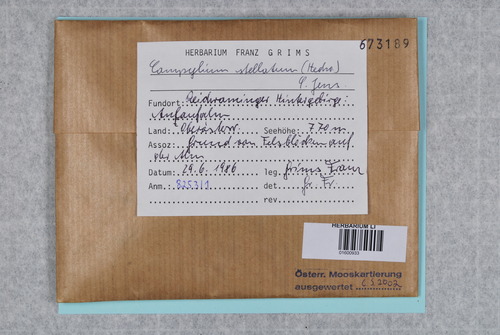 HERBARIUM FRANZ GRIMS
673189
Campylium stellatum (Hedw.)
C. Jens
Fundort: Reichraminger Hintergebirge:
Land: Oberösterr. Seehöhe: 770 m
Assoz: Grund von Felsblöcken auf
Datum: 29.6.1986 leg. Grims Franz
Anm.: 8253/1 det. Gr. Fr.
rev.
HERBARIUM LI
Österr. Mooskartierung
ausgewertet 2002